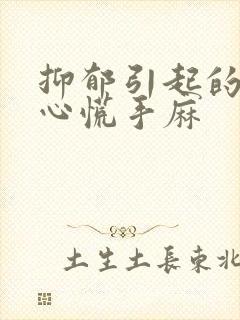 抑郁引起的
心慌手麻
土生土長東北